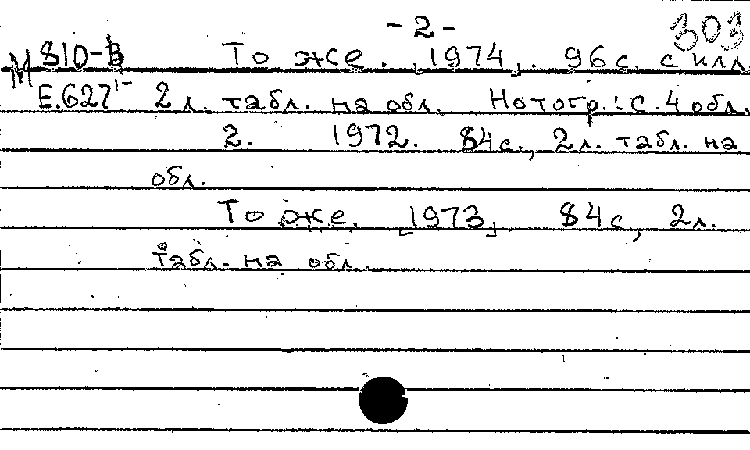 - 2 -
303
М 810-В То же. [1974]. 96 с. с илл.
Е.627 2 л. табл. на обл. Нотогр.: с. 4 обл.
2. 1972. 84 с., 2 л. табл. на
обл.
То же. [1973] 84 с, 2 л.
табл. на обл.